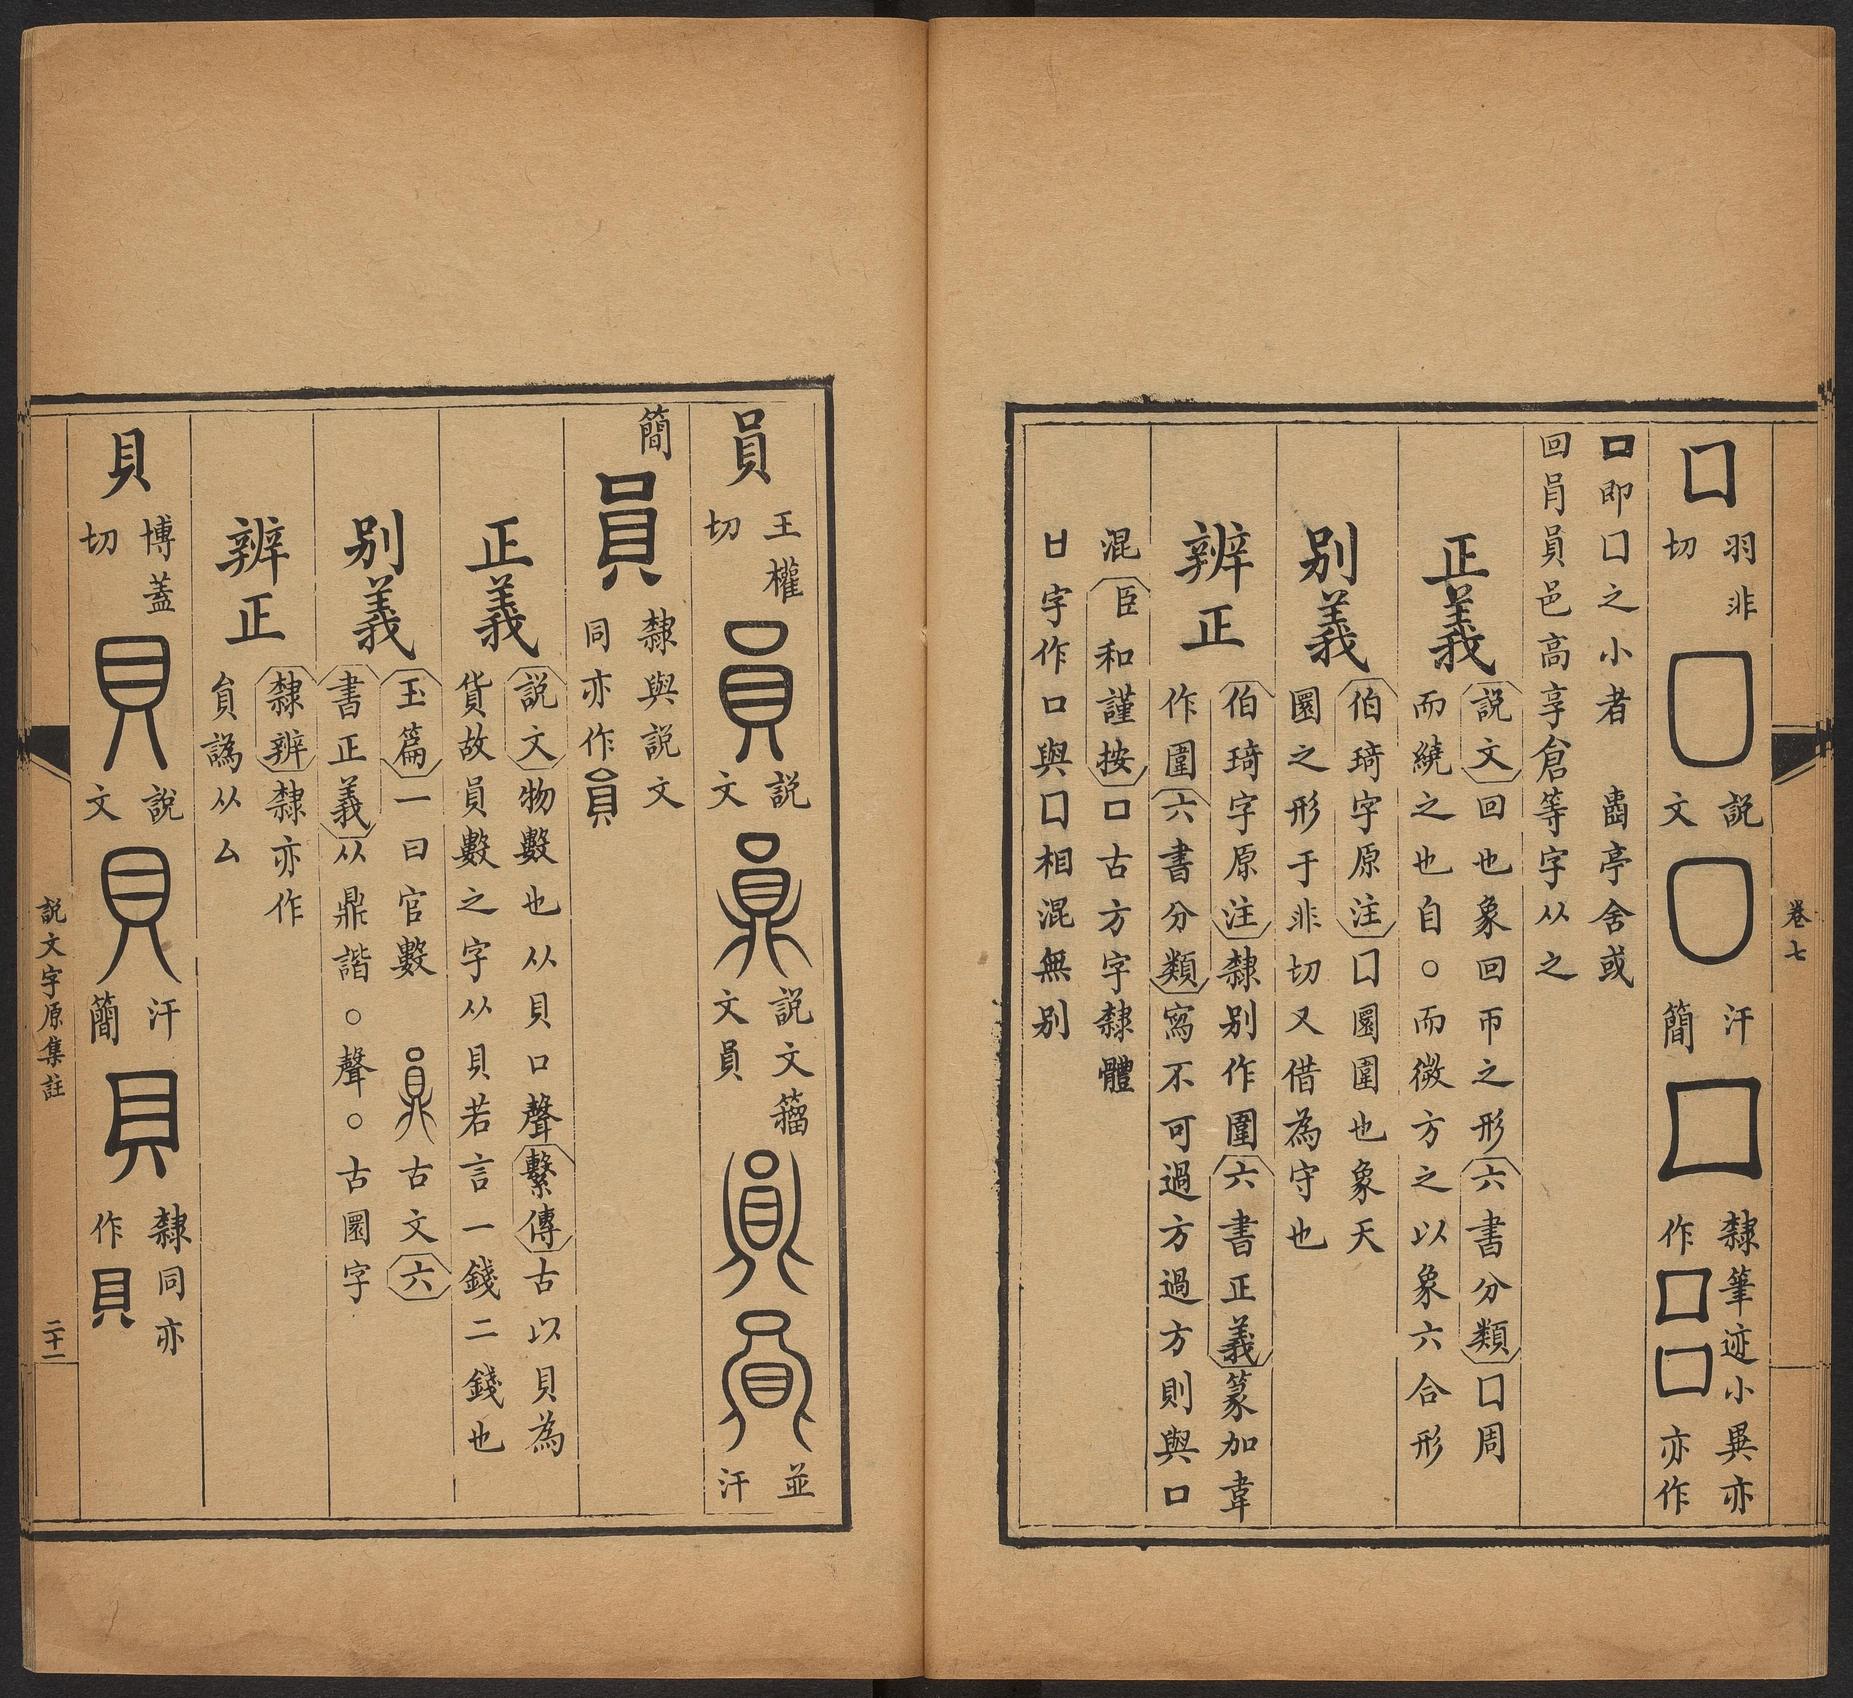 卷七
囗
羽非
切
說
文
汗
簡
隸筆迹小異亦
作囗囗亦作
口即囗之小者 嗇亭舍或
回肙員邑高享倉等字从之
正義
說文回也象回帀之形六書分類囗周
而繞之也自○而微方之以象六合形
别義
伯琦字原注囗圜圍也象天
圜之形于非切又借為守也
辨正
伯琦字原注隸别作圍六書正義篆加韋
作圍六書分類寫不可過方過方則與口
混臣和謹按口古方字隸體
日字作口與囗相混無别
員
王權
切
說
文
說文籀
文員
並
汗
簡
員
隸與說文
同亦作員
正義
說文物數也从貝口聲繫傳古以貝為
貨故員數之字从貝若言一錢二錢也
别義
玉篇一曰官數 鼎古文六
書正義从鼎諧○聲○古圜字
辨正
隸辨隸亦作
貟譌从厶
貝
博蓋
切
說
文
汗
簡
貝
隸同亦
作貝
說文字原集註
二十一